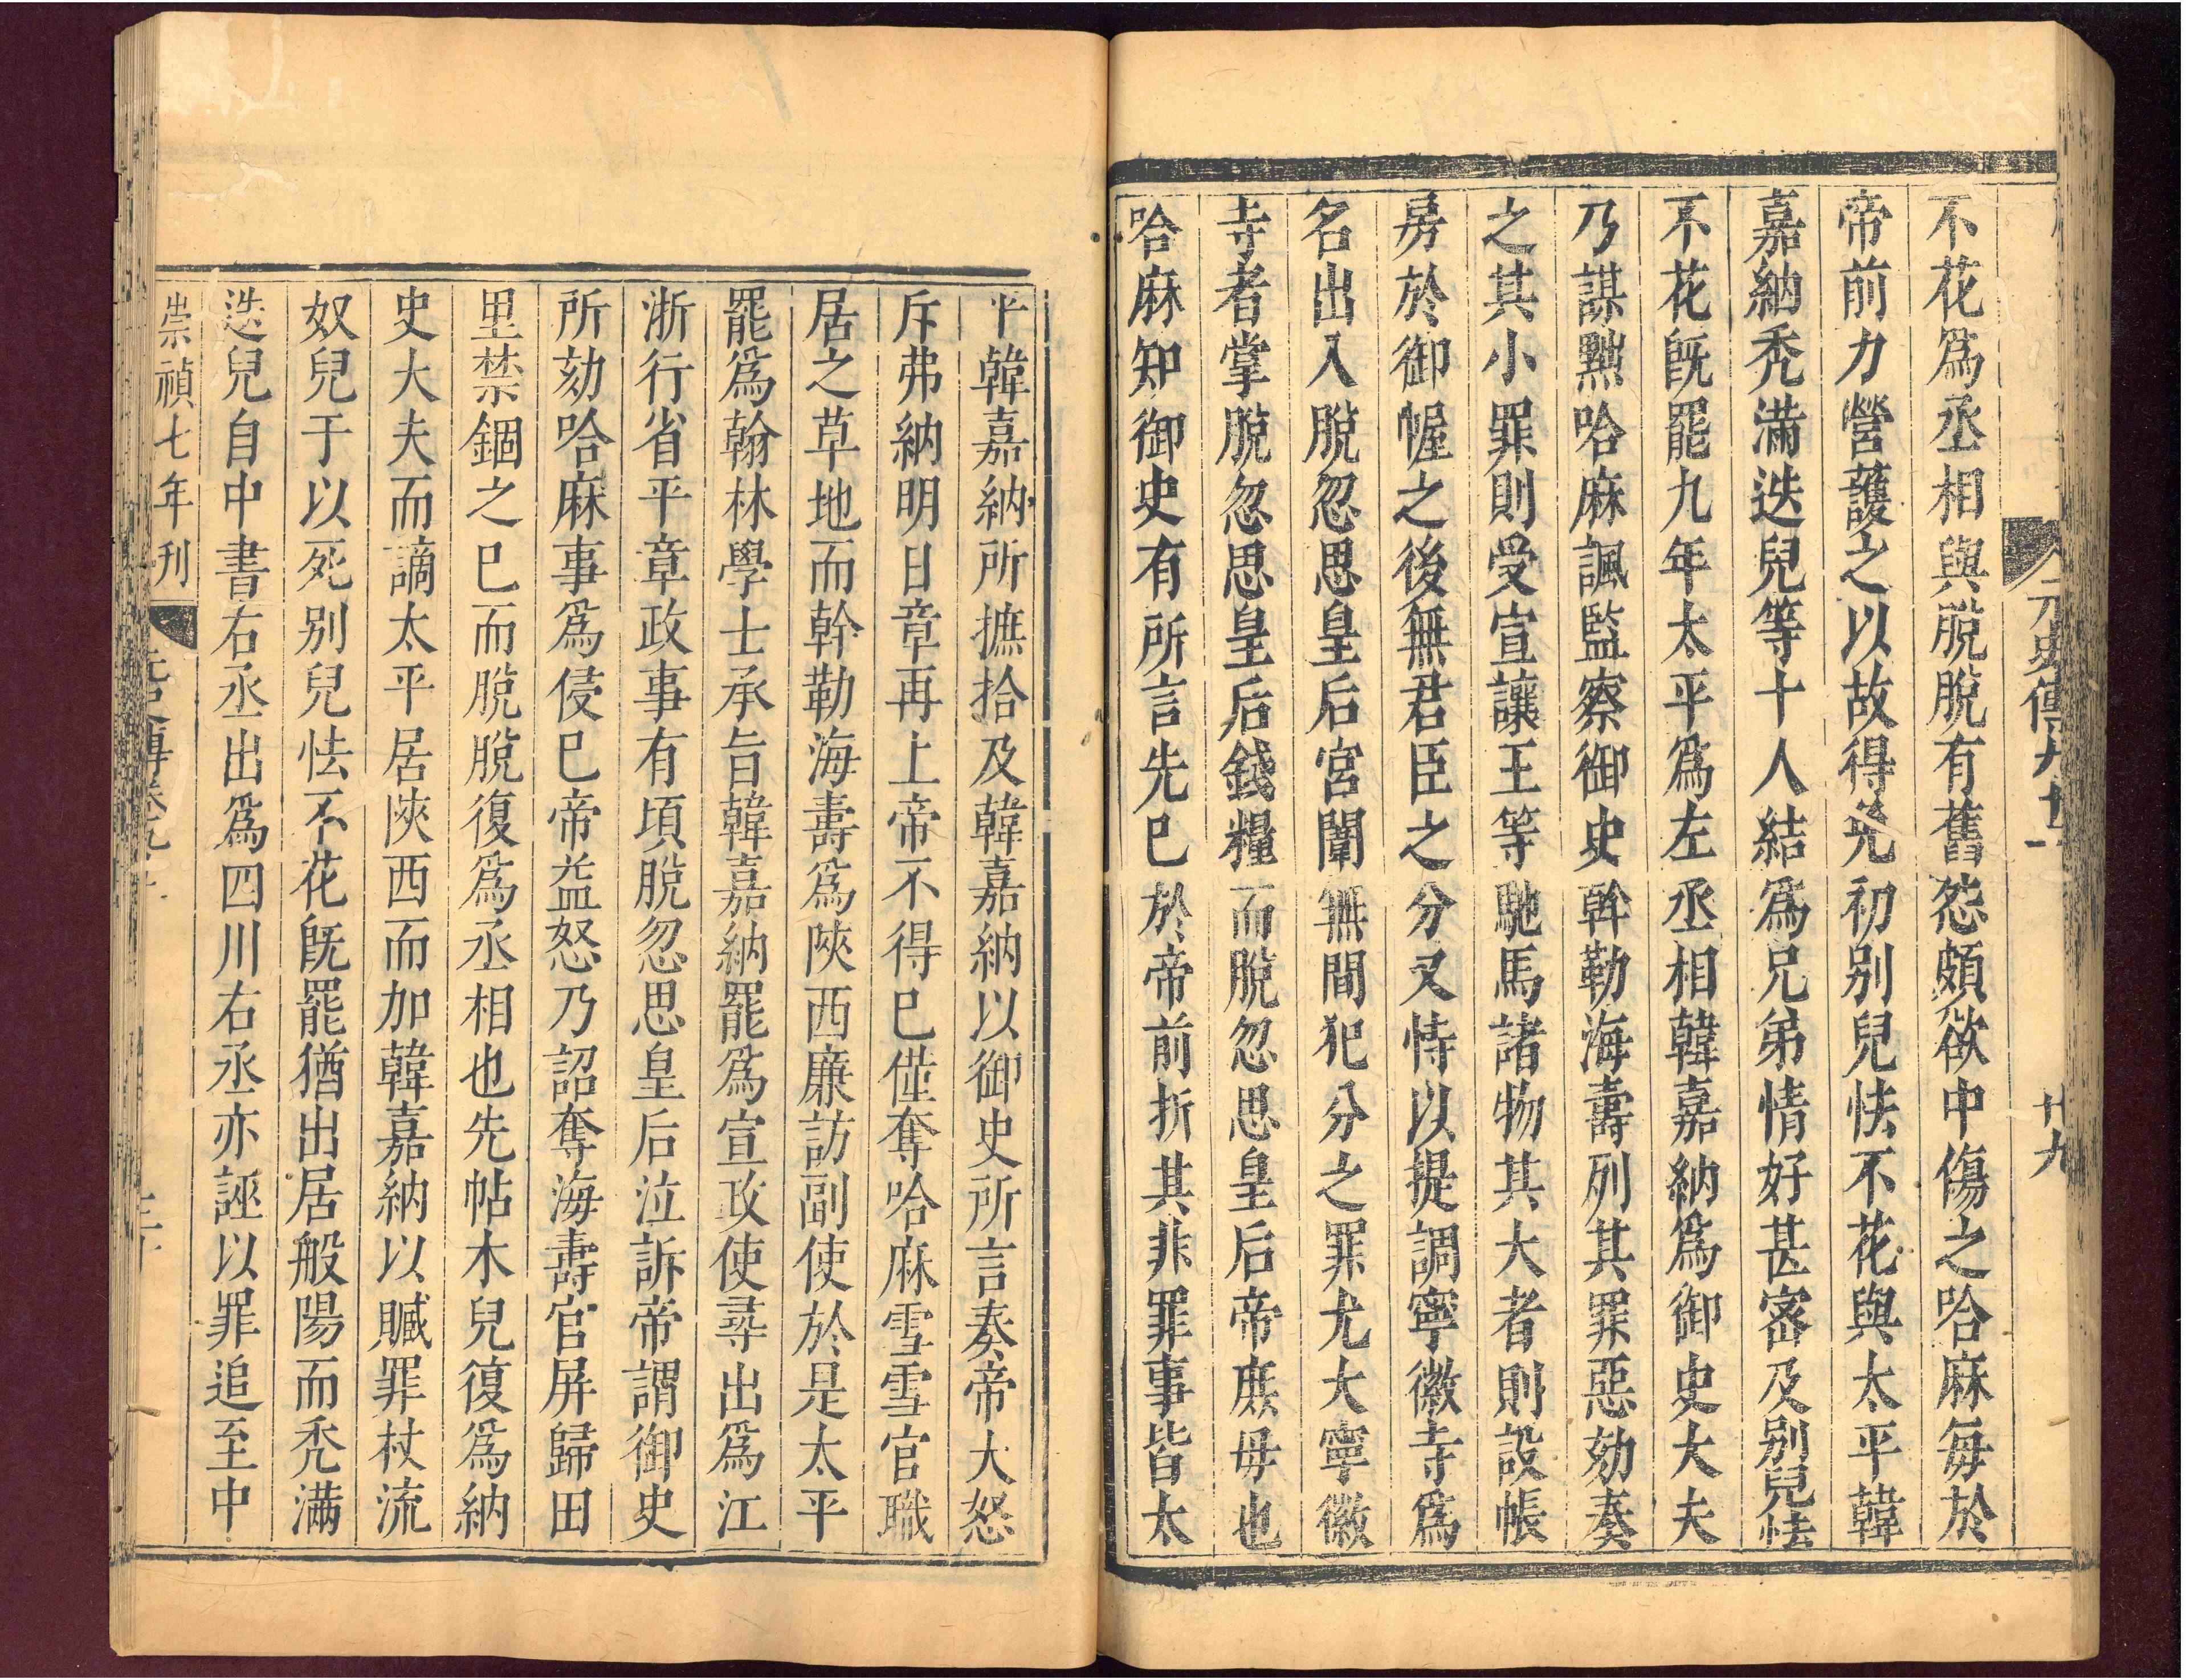 元史傳九十二
廿九
不花爲丞相與脫脫有舊怨頗欲中傷之哈麻每於
帝前力營護之以故得免初别兒怯不花與太平韓
嘉納禿滿迭兒等十人結爲兄弟情好甚宻及别兒怯
不花旣罷九年太平爲左丞相韓嘉納爲御史大夫
乃謀黜哈麻諷監察御史斡勒海壽列其罪惡劾奏
之其小罪則受宣讓王等馳馬諸物其大者則設帳
房於御幄之後無君臣之分又恃以提調寧徽寺爲
名出入脫忽思皇后宮闈無間犯分之罪尤大寧徽
寺者掌脫忽思皇后錢糧而脫忽思皇后帝庶母也
哈麻知御史有所言先已於帝前折其非罪事皆太
平韓嘉納所摭拾及韓嘉納以御史所言奏帝大怒
斥弗納明日章再上帝不得已僅奪哈麻雪雪官職
居之草地而斡勒海壽爲陜西廉訪副使於是太平
罷爲翰林學士承旨韓嘉納罷爲宣政使尋出爲江
浙行省平章政事有頃脫忽思皇后泣訴帝謂御史
所劾哈麻事爲侵已帝益怒乃詔奪海壽官屏歸田
里禁錮之已而脫脫復爲丞相也先帖木兒復爲納
史大夫而謫太平居陜西而加韓嘉納以贓罪杖流
奴兒于以死别兒怯不花旣罷猶出居般陽而禿滿
迭兒自中書右丞出爲四川右丞亦誣以罪追至中
崇禎七年刊